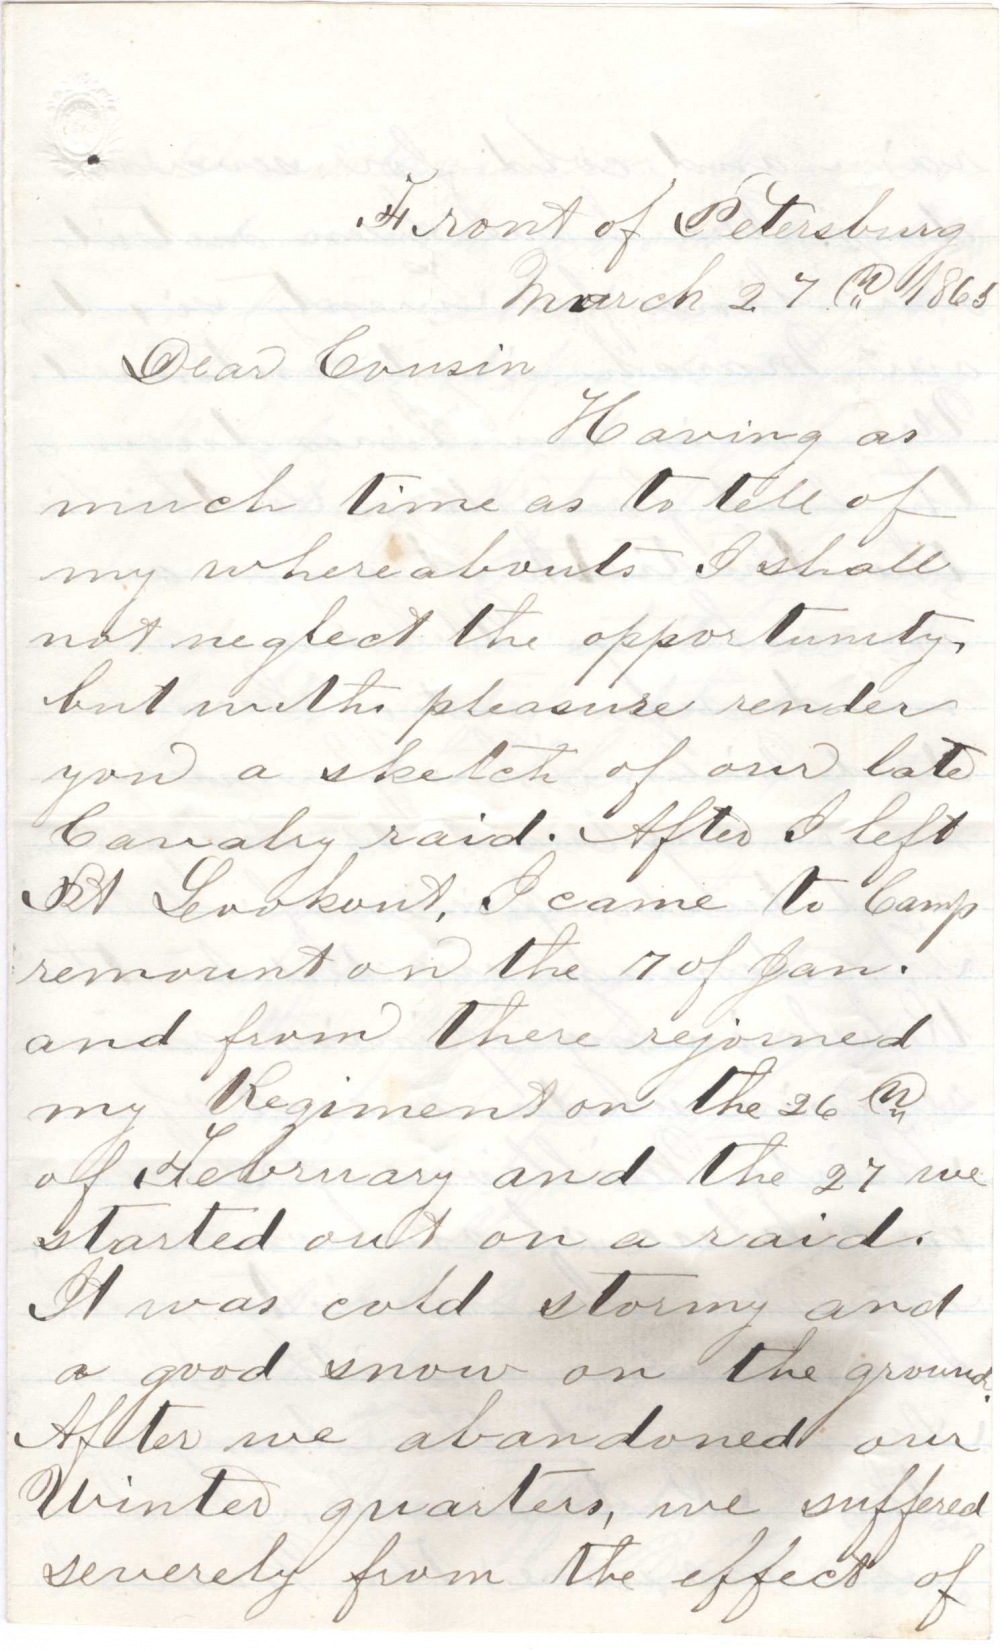 Front of Petersburg
March 27th 1865
Dear Cousin
Having as
much time as to tell of
my whereabouts I shall
not neglect the opportunity,
but with pleasure render
you a sketch of our late
Cavalry raid. After I left
Pt Lookout, I came to Camp
remount on the 7 of Jan.
and from there rejoined
my Regiment on the 26th
of February and the 27 we
started out on a raid.
It was cold stormy and
a good snow on the ground.
After we abandoned our
Winter quarters, we suffered
severely from the effect of